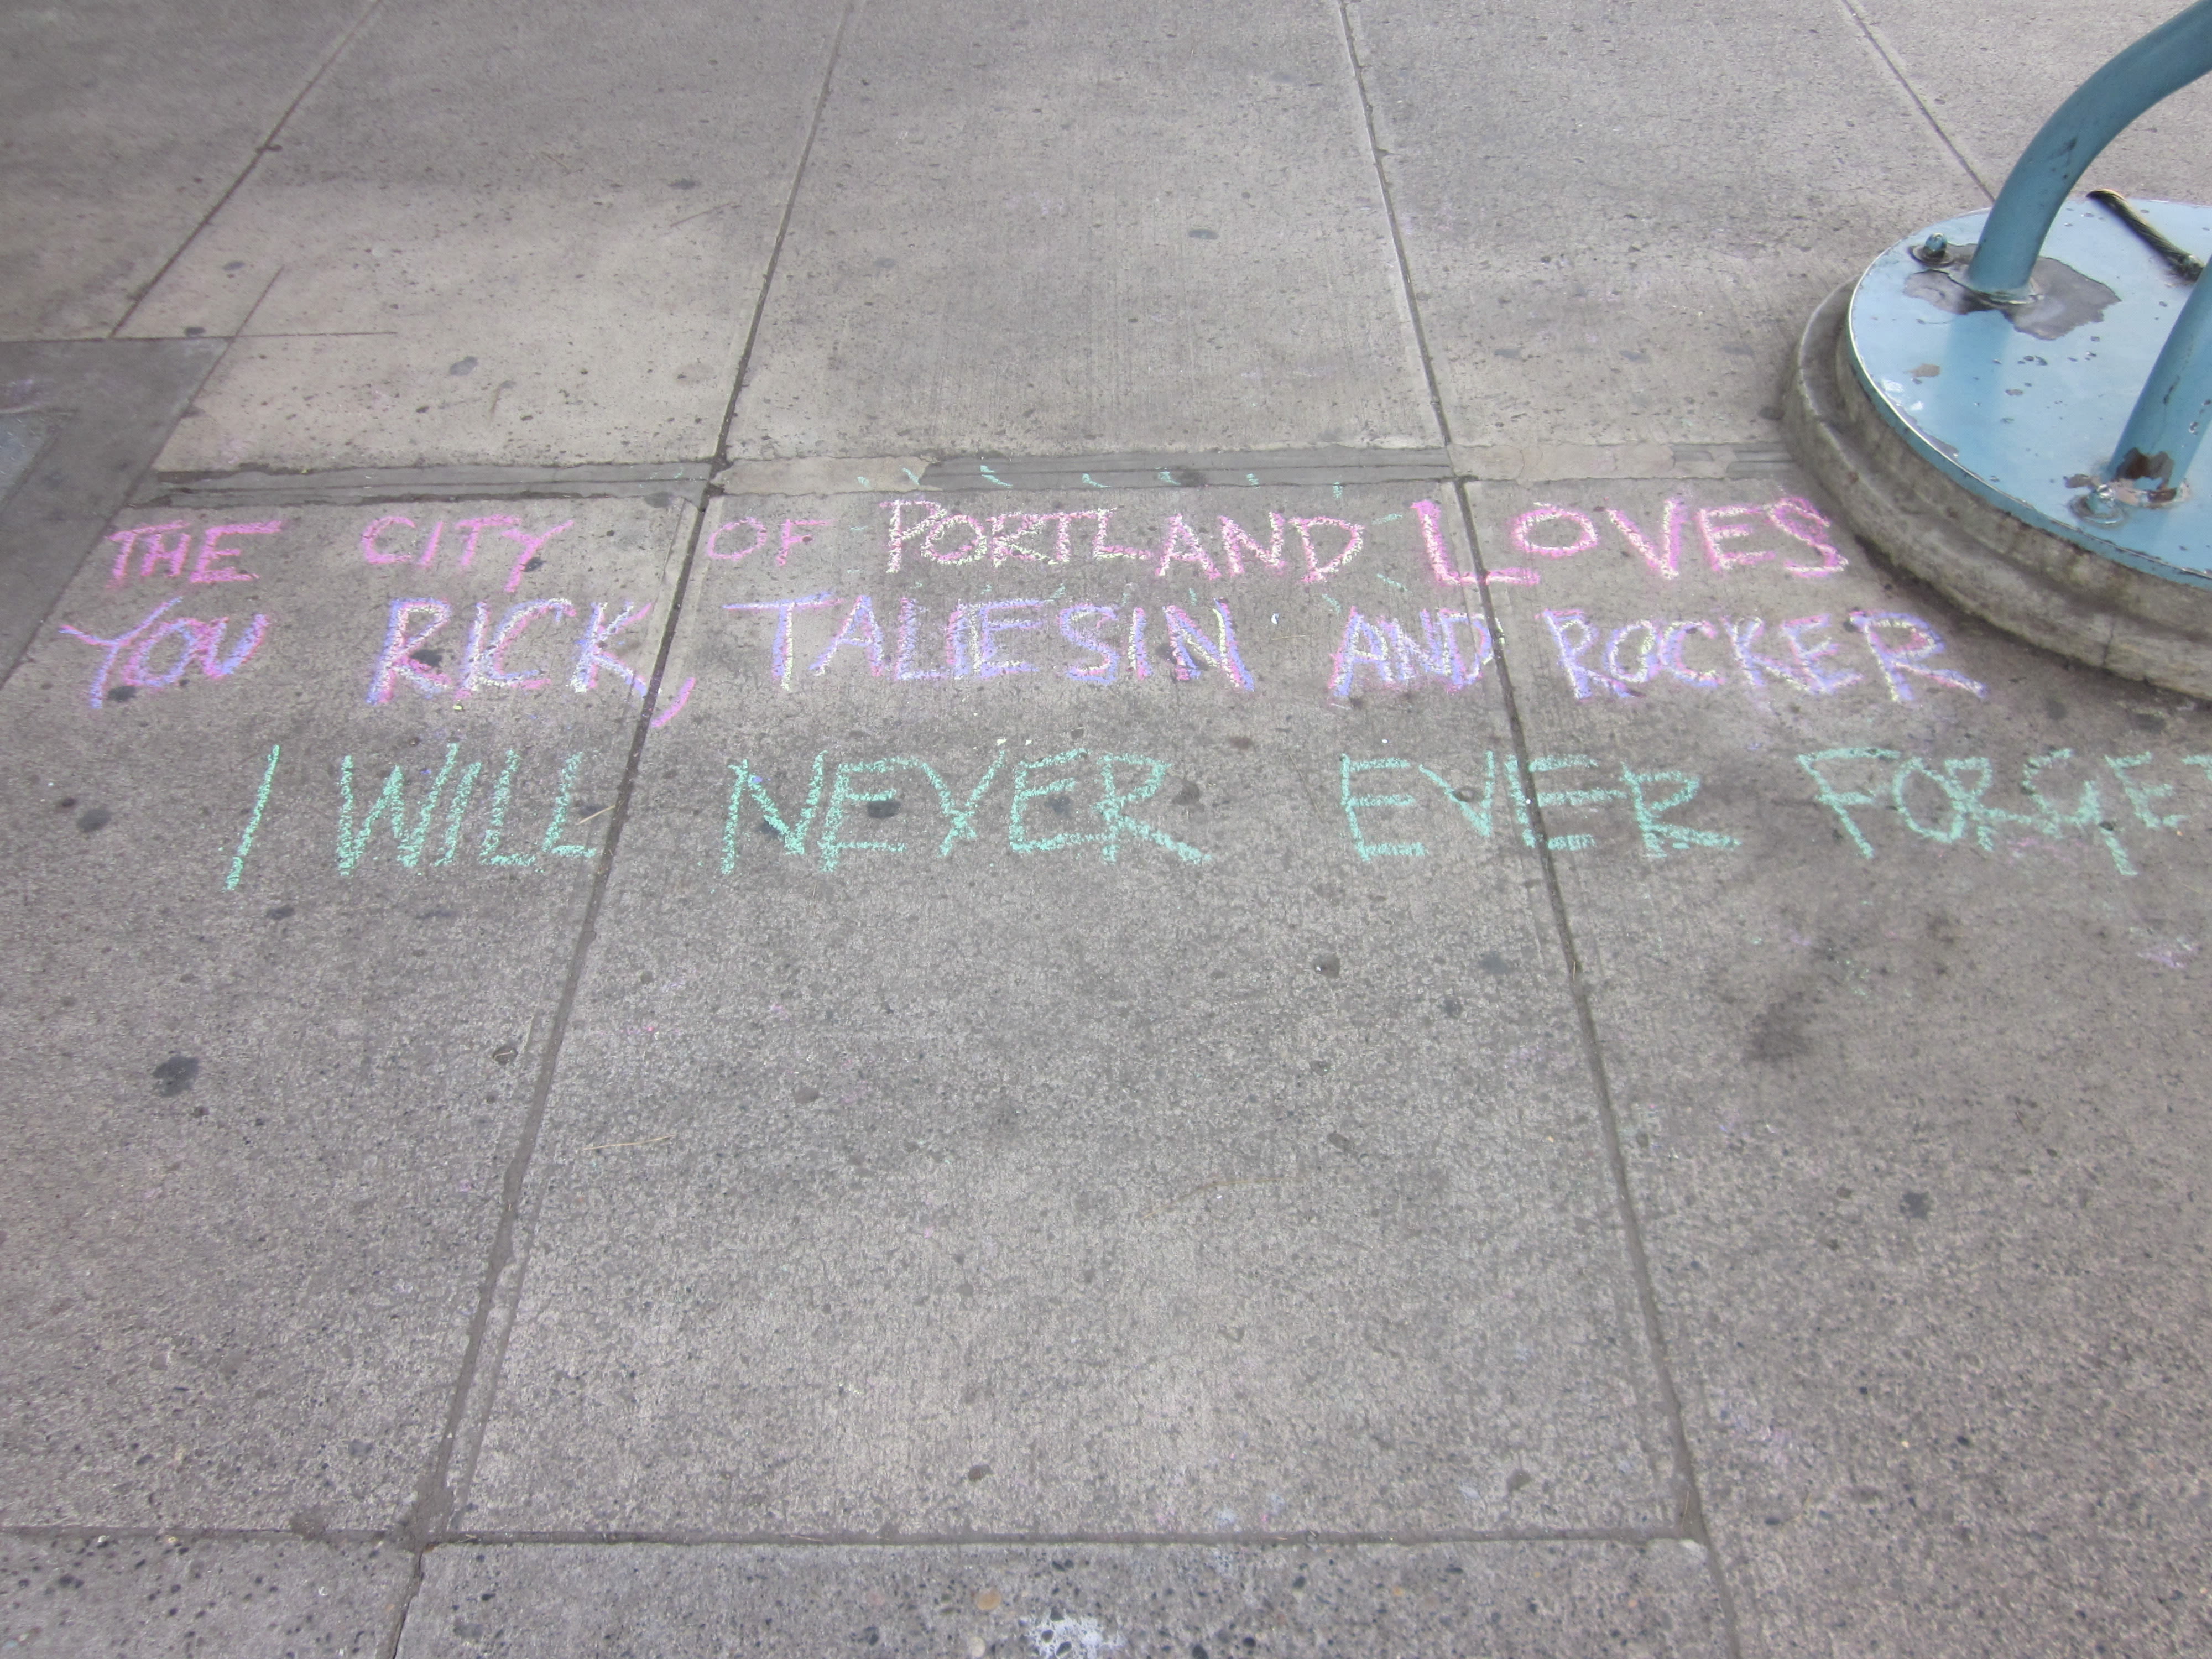 THE CITY OF PORTLAND LOVES
YOU RICK, TALIESIN AND ROCKER
I WILL NEVER EVER FORGET